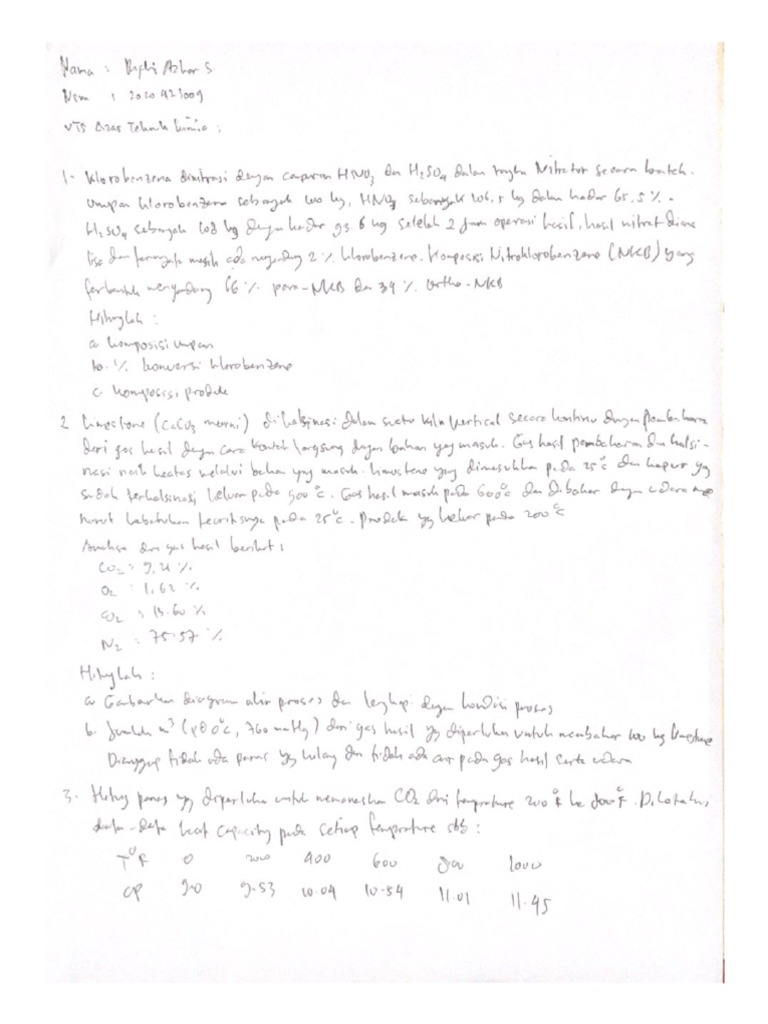 Nama : Rifki Azhar S.
Nim : 2020421009
UTS Azas Teknik Kimia :
1. Klorobenzena dinitrasi dengan campuran HNO3 dan H2SO4 dalam Nitrator secara batch.
umpan klorobenzena sebanyak 100 kg, HNO3 sebanyak 106,5 kg dalam kadar 65,5 %.
H2SO4 sebanyak 108 kg dengan kadar 93.6 kg setelah 2 jam operasi hasil, hasil nitrat diana
lisa dan ternyata masih ada mengandung 2 % klorobenzene. Komposisi Nitroklorobenzene (NKB) yang
terbentuk mengandung 66 % para-NKB dan 34 % ortho-NKB
Hitunglah :
a. komposisi umpan
b. % konversi klorobenzene
c. komposisi produk
2 Limestone (CaCO3 murni) dikalsinasi dalam suatu kiln vertical secara kontinu dengan pembakaran
dari gas hasil dengan cara kontak langsung dengan bahan yang masuk. Gas hasil pembakaran dan kalsi-
nasi naik keatas melalui bahan yang masuk. limestone yang dimasukkan pada 25°C dan kapur yg
sudah terkalsinasi keluar pada 900°C. Gas hasil masuk pada 600°C dan dibakar dengan udara
kebutuhan teoritisnya pada 25°C. Produk yg keluar pada 200°C
Analisa dari gas hasil berikut :
CO2 = 9,21 %
O2 = 1,62 %
= 13.60 %
N2 = 75.57 %
Hitunglah :
a. Gambarkan diagram alir proses dan lengkapi dengan kondisi proses
b. Jumlah m3 (0°C, 760 mmHg) dari gas hasil yg diperlukan untuk membakar 100 kg limestone
Dianggap tidak ada panas yg hilang dan tidak ada air pada gas hasil serta udara
3. Hitung panas yg diperlukan untuk memanaskan CO2 dari temperature 200°F ke 800°F. Diketahui
data-data heat capacity pada setiap temperature sbb :
T°F 0 200 400 600 800 1000
CP 9.0 9.53 10.04 10.54 11.01 11.45